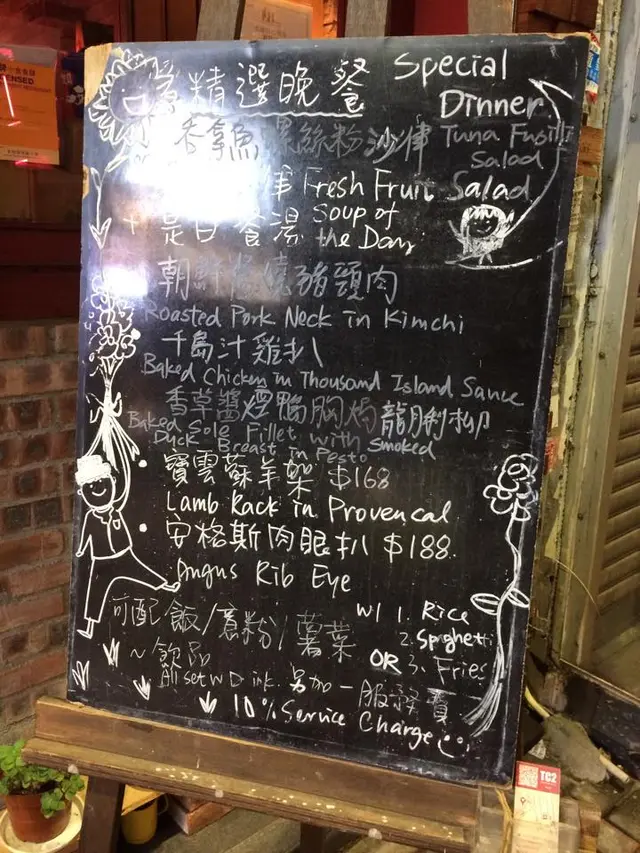 精選晚餐 Special Dinner
香拿魚螺絲粉沙律 Tuna Fusilli Salad
Fresh Fruit Salad
+ 是日餐湯 Soup of the Day
朝鮮 燒豬頸肉
Roasted Pork Neck in Kimchi
千島汁雞扒
Baked Chicken in Thousand Island Sauce
香草醬煙鴨胸焗龍脷柳
Baked Sole Fillet with Smoked
Duck Breast in Pesto
寶雲蘇羊架 $168
Lamb Rack in Provencal
安格斯肉眼扒 $188
Angus Rib Eye
可配飯/意粉/薯菜 W/ 1. Rice
2. Spaghetti
OR 3. Fries
~飲品
All set W D ink. 另加一服務費
10% Service Charge
TC2